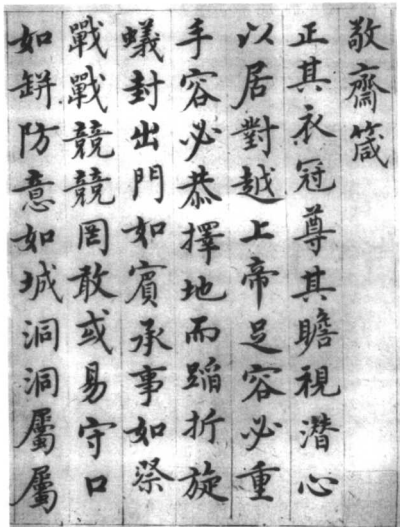 敬齋箴
正其衣冠尊其瞻視潛心
以居對越上帝足容必重
手容必恭擇地而蹈折旋
蟻封出門如賓承事如祭
戰戰兢兢罔敢或易守口
如缾防意如城洞洞屬屬